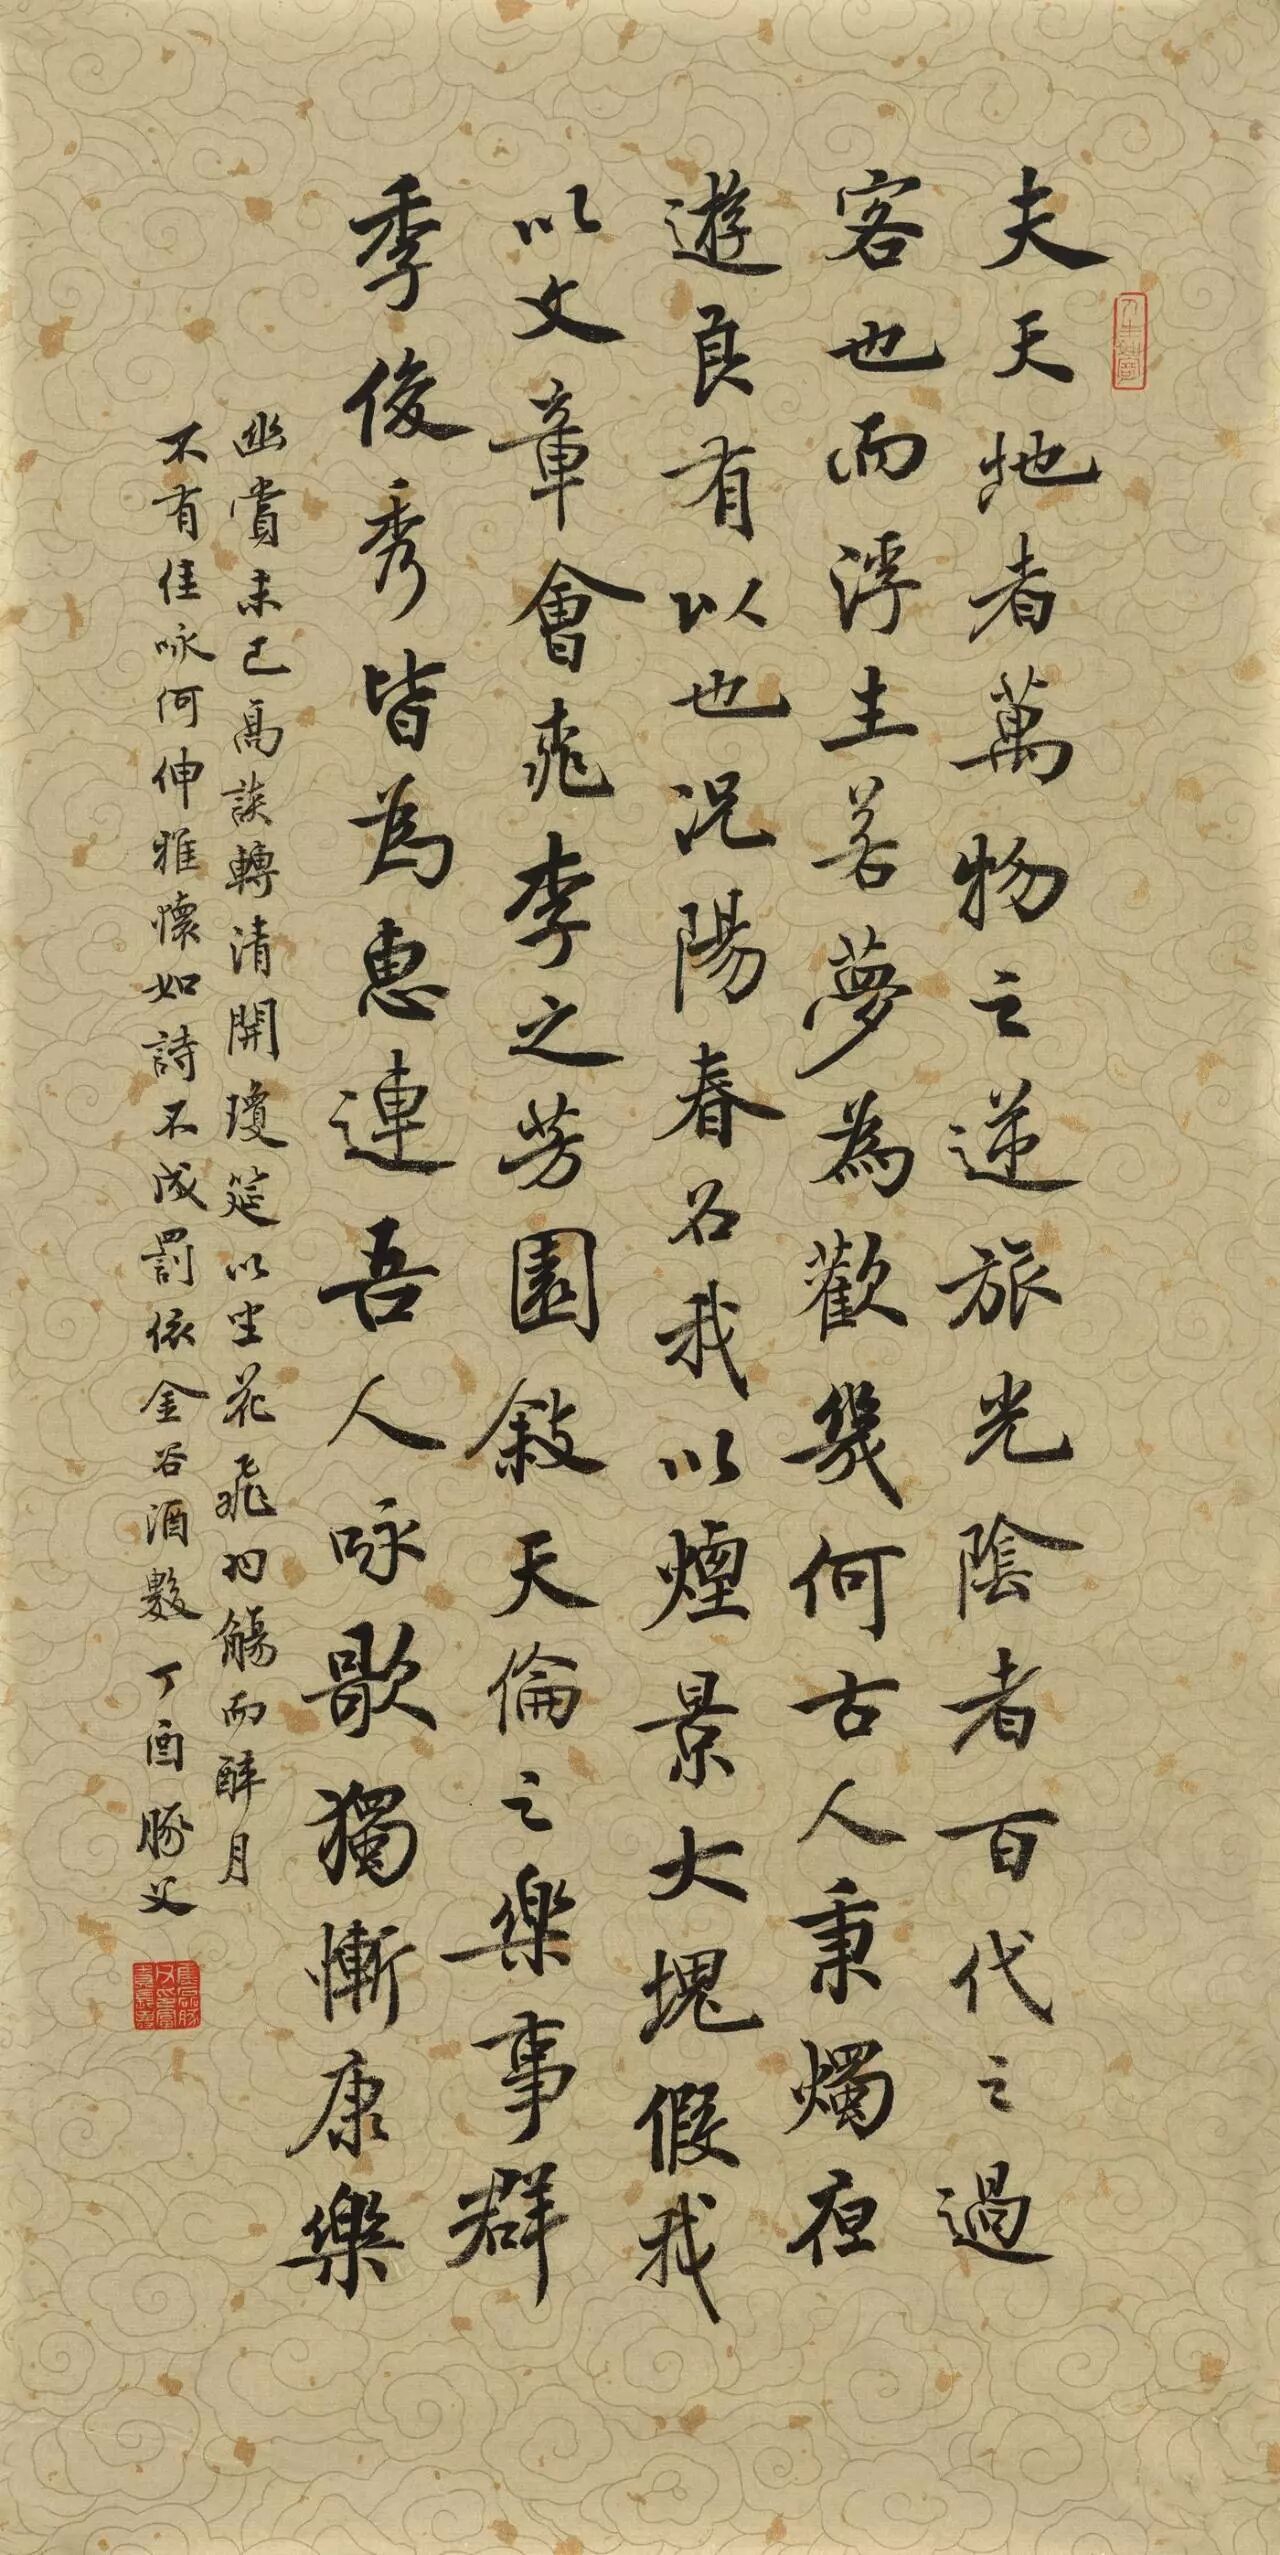 夫天地者萬物之逆旅光陰者百代之過
客也而浮生若夢為歡幾何古人秉燭夜
遊良有以也況陽春召我以煙景大塊假我
以文章會桃李之芳園敘天倫之樂事群
季俊秀皆為惠連吾人咏歌獨慚康樂
幽賞未已高談轉清開瓊筵以坐花飛羽觴而醉月
不有佳咏何伸雅懷如詩不成罰依金谷酒數 丁酉 豚父